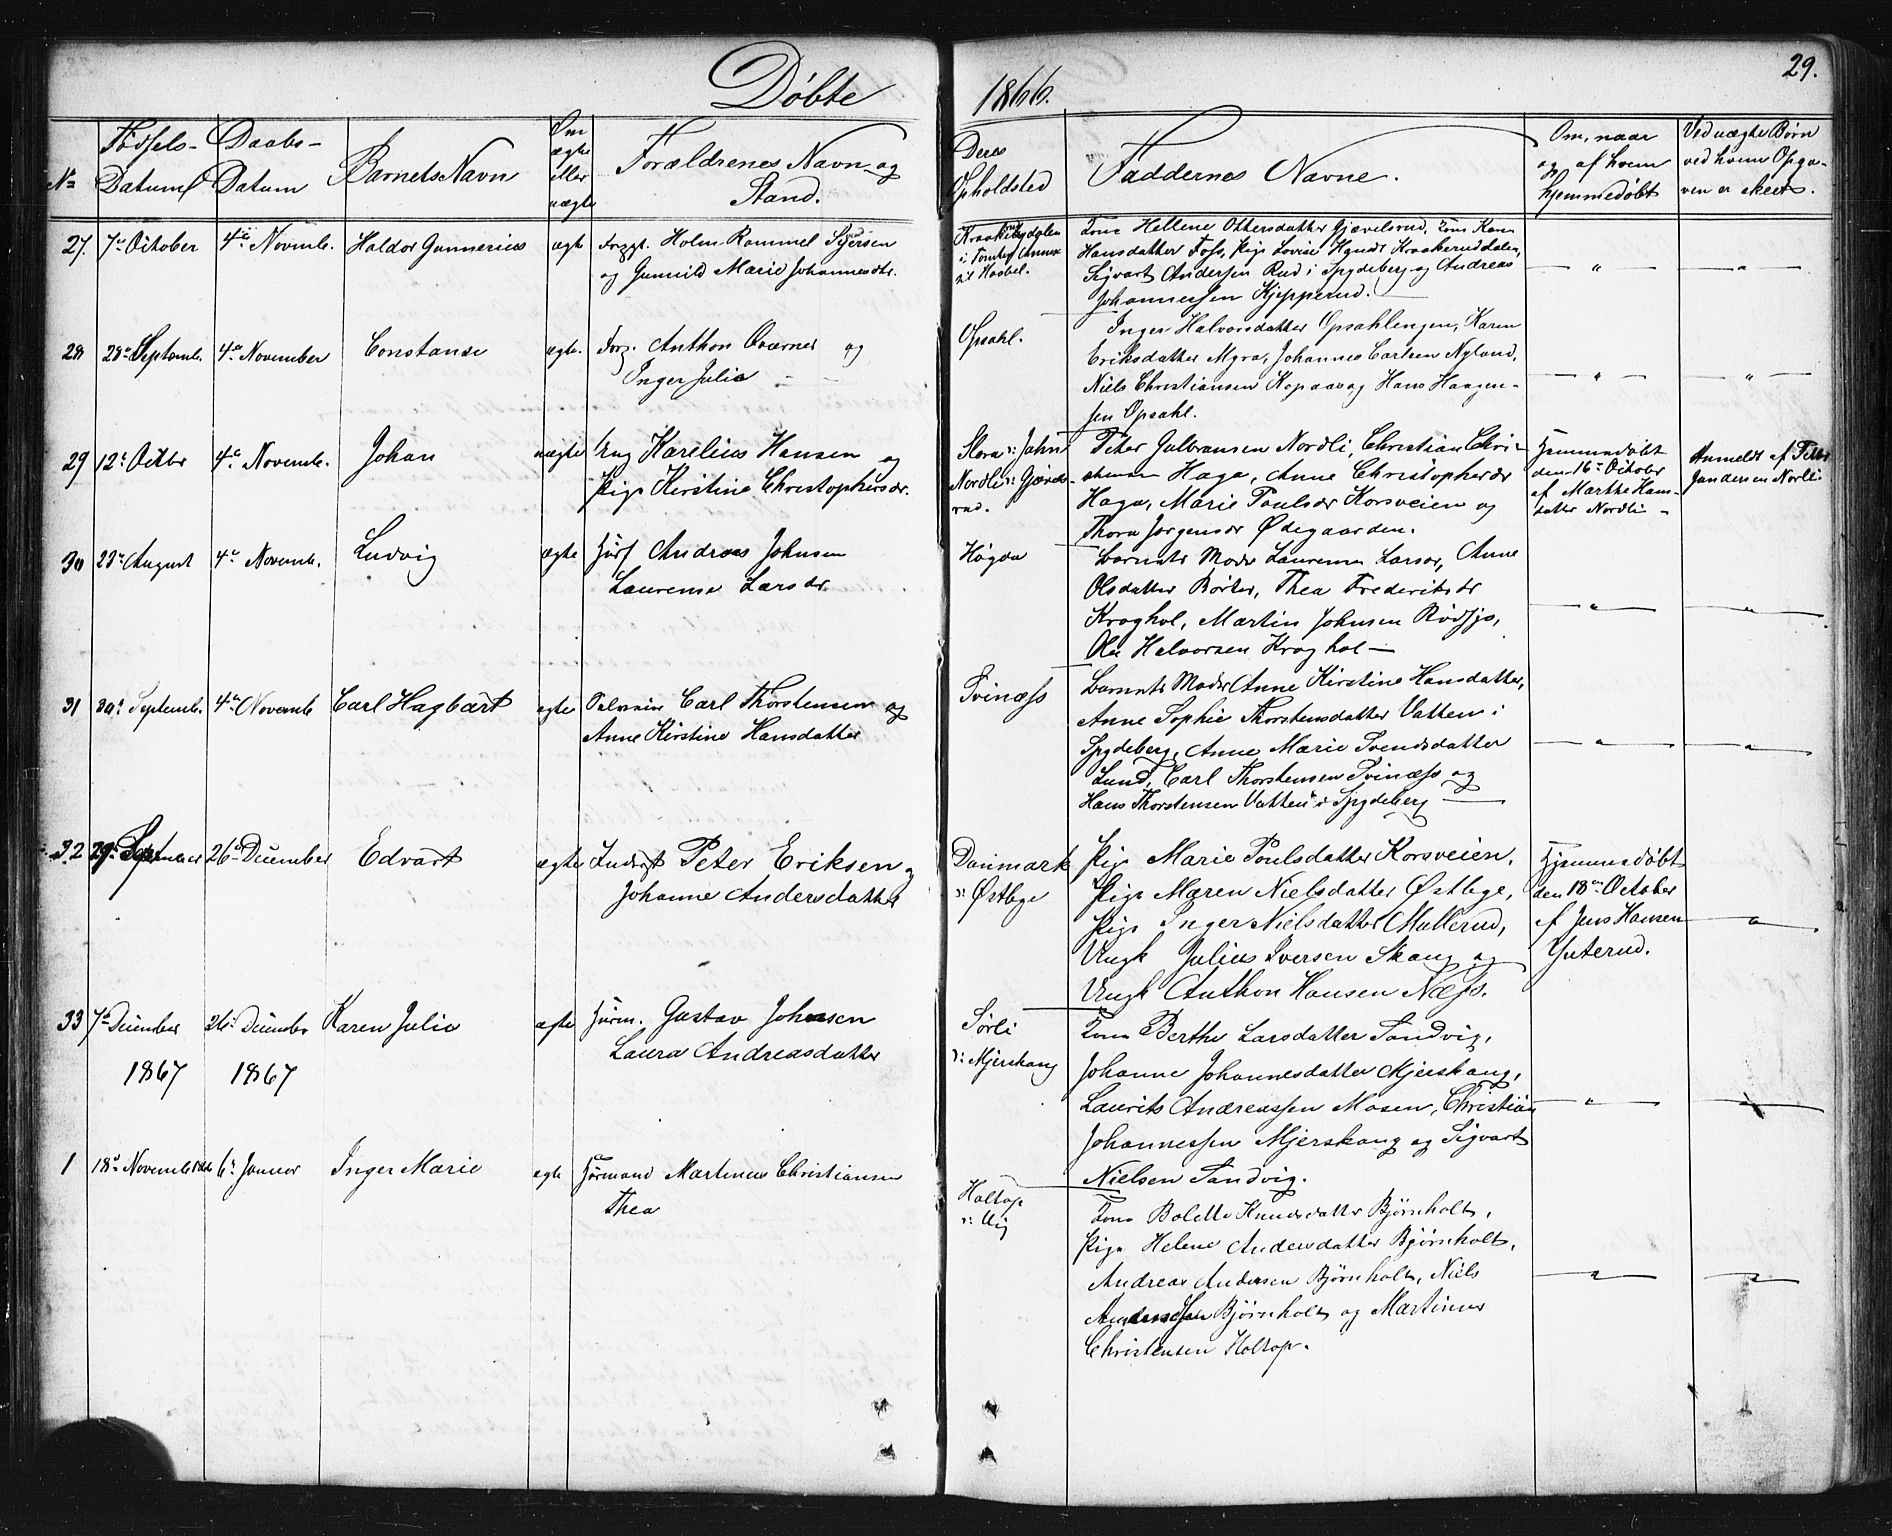 Døbte
1866.
29.
No
Fødsels-
Datum
Daabs-
Datum
Barnets Navn
Om
ægte
eller
uægte
Forældrenes Navn og
Stand.
Deres
Opholdsted
Faddernes Navne.
Om, naar
og af hvem
hjemmedøbt
Ved uægte Børn
ved hvem Opga-
ven er skeet.
27. 7de October 4de Novemb. Haldor Gunnerius ægte Holm Rommel
og Gunnild Marie Johannesdtr.
i Tomter Annex
til Haabøl.
Kone Hellene Ottersdatter Gjævelsrud, Kone Karen
Hansdatter Foss, Pige Lovise Kraakeruddalen,
Sigvart Andersen Rud i Spydeberg og Andreas
Johannessen Kjepperud.
28 28de Septemb. 4de November Constanse ægte. Anthon Overnes og
Inger Julia
Opsahl.
Inger Halvorsdatter Opsahlengen, Karen
Eriksdatter Myra, Johannes Carlsen Nyland,
Niels Christiansen Kopaas og Hans Haagen-
sen Opsahl.
29 12te Octbr 4de Novemb. Johan uægte Ung Karelius Hansen og
Pige Kirstine Christophersdr.
Nordli
Peter Gulbransen Nordli, Christian Chri-
stensen Haga, Anne Christophersdr
Haga, Marie Poulsdr Korsveien og
Thora Jørgensdr Ødegaarden.
Hjemmedøbt
den 16de October
af Marthe Hans-
datter Nordli
Anmeldt af Peter
Gundersen Norli.
30 23de August 4de Novemb. Ludvig ægte Andreas Johnsen
Laurense Larsdr.
Høgda
Barnets Moder Laurense Larsdr, Anne
Olsdatter Børter, Thea Frederiksdr
Kroghol, Martin Johnsen Rødsjø,
Ole Halvorsen Kroghol
31 30te Septemb. 4de Novemb Carl Hagbart ægte Carl Thorstensen og
Anne Kirstine Hansdatter
Tvinæss
Barnets Moder Anne Kirstine Hansdatter,
Anne Sophie Thorstensdatter Vatten i
Spydeberg, Anne Marie Svendsdatter
Lund, Carl Thorstensen Tvinæss og
Hans Thorstensen Vatten i Spydeberg
32 29de September 26de December Edvart ægte Inderst Peter Eriksen og
Johanne Andersdatter
Danmark
v: Østbye
Pige Marie Poulsdatter Korsveien,
Pige Maren Nielsdatter Østbye,
Pige Inger Nielsdatter Mullerud,
Ungk Julius Iversen Skaug og
Ungk Anthon Hansen Næss.
Hjemmedøbt
den 18de October
af Jens Hansen
Yuterud.
33 7de December 26de Decembr Karen Julie ægte Huusm. Gustav Johnsen
Laura Andreasdatter
Sørli
v: Mjerskaug
Kone Berthe Larsdatter Sandvig,
Johanne Johannesdatter Mjerskaug,
Laurits Andreassen Mosen, Christian
Johannessen Mjerskaug og Sigvart
Nielsen Sandvig.
1867 1867
1 18de November 1866 6te Januar Inger Marie ægte Huusmand Martinus Christiansen
Thea
Holtop
Kone Bolette Knudsdatter Bjørnholt,
Pige Helene Andersdatter Bjørnholt,
Andreas Andersen Bjørnholt, Niels
Andersen Bjørnholt og Martinus
Christensen Holtop.